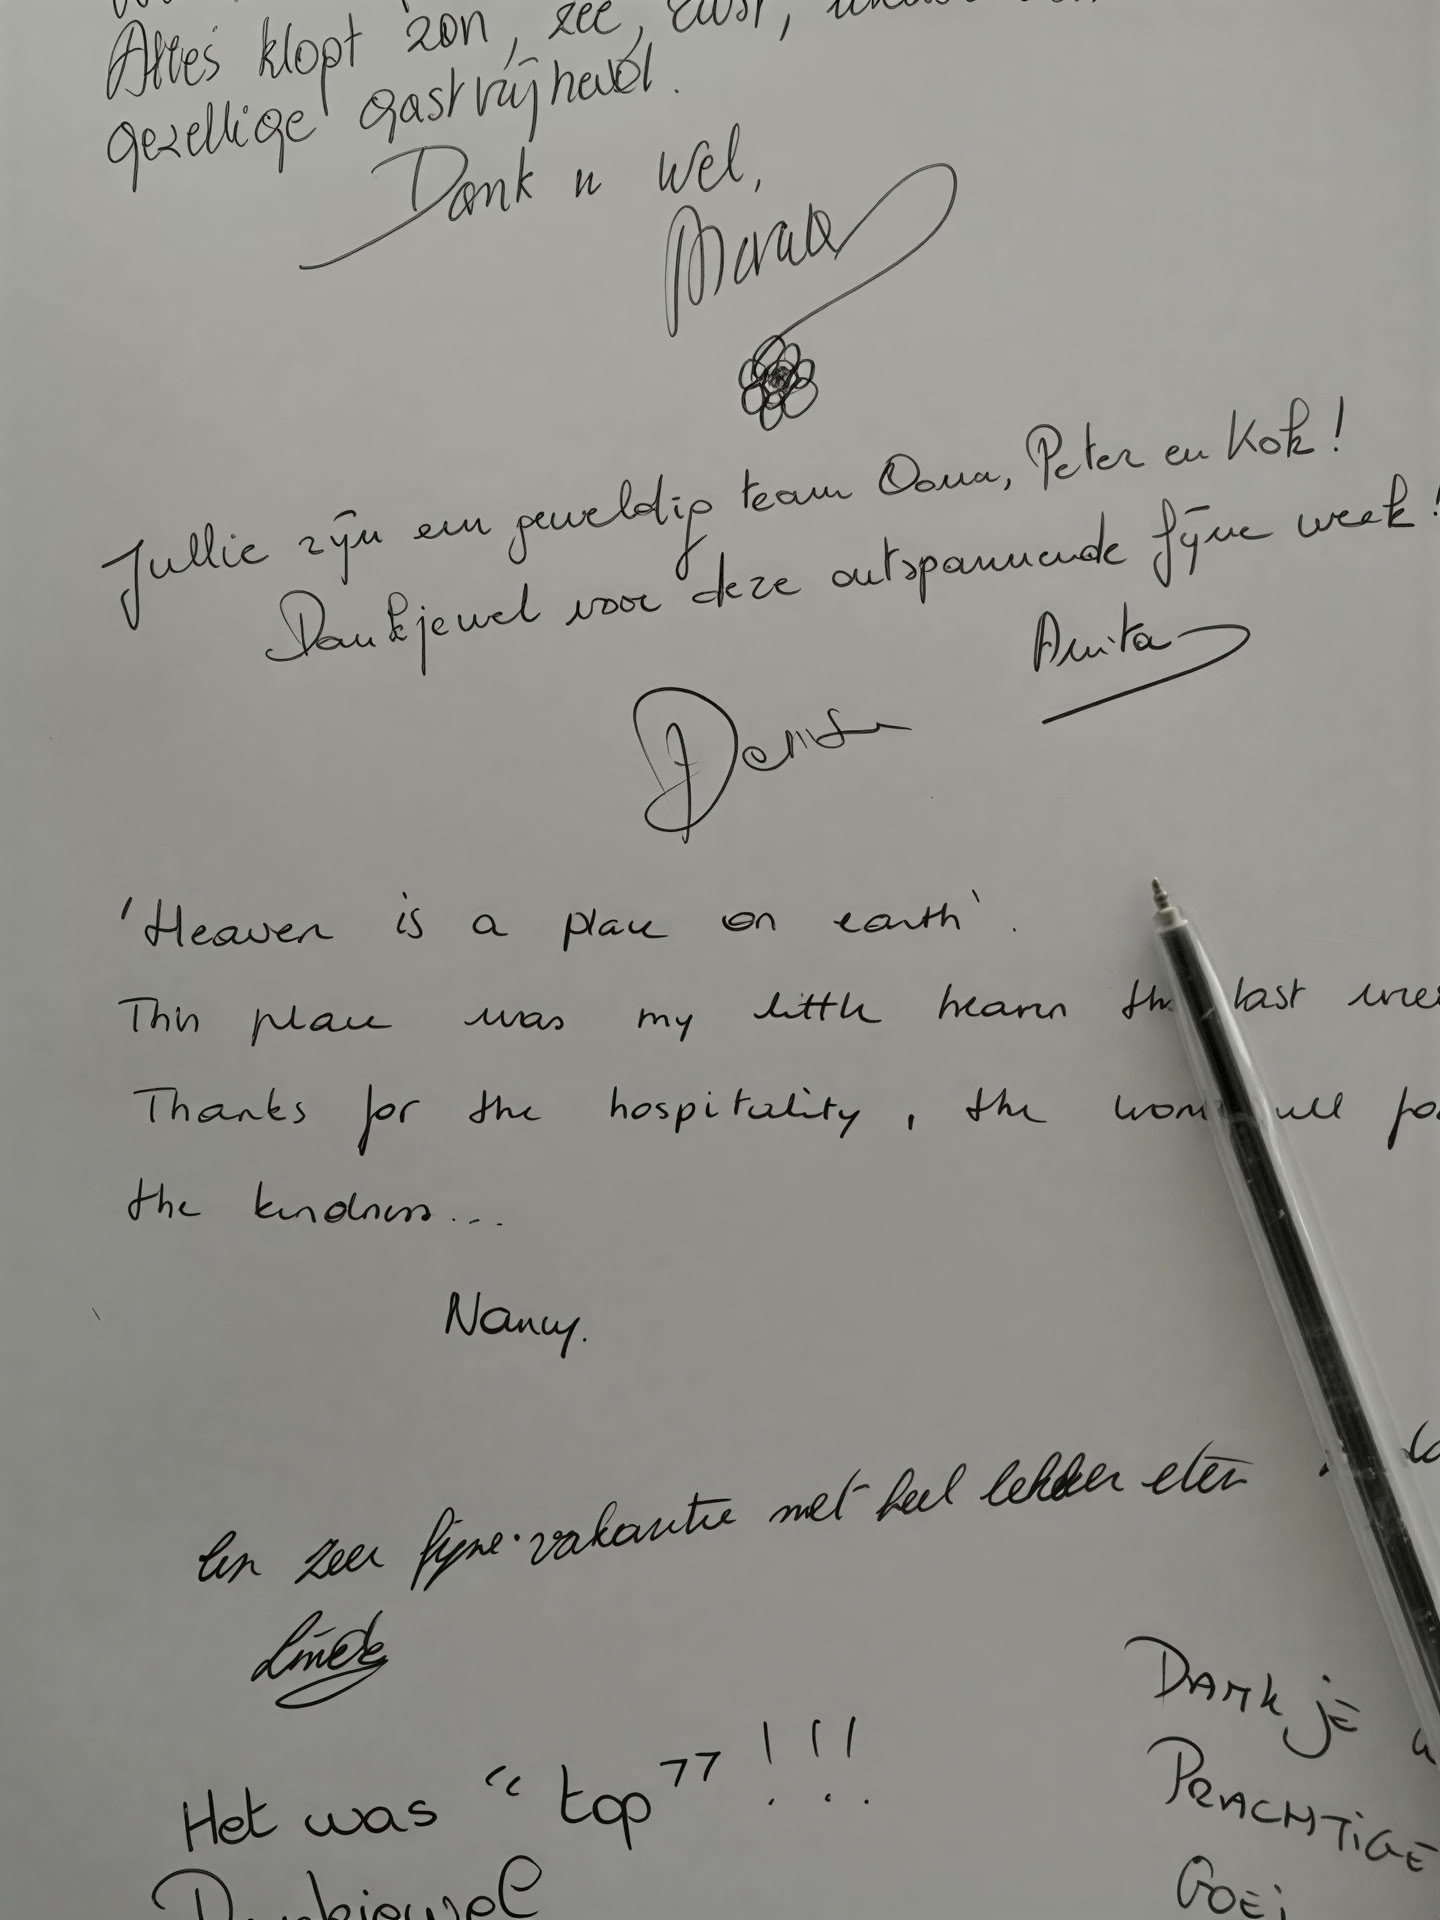 Alles klopt zon, zee, rust,
gezellige gastvrijheid.
Dank u wel,
Jullie zijn een geweldig team Oona, Peter en Kok!
Dankjewel voor deze ontspannende fijne week!
Anita
Denise
'Heaven is a place on earth'.
This place was my little heaven the last
Thanks for the hospitality, the
the kindness...
Nancy.
Een zeer fijne vakantie met heel lekker eten
Linda
Het was "top"!!!
Dank je
Prachtige
Goei
Dankjewel